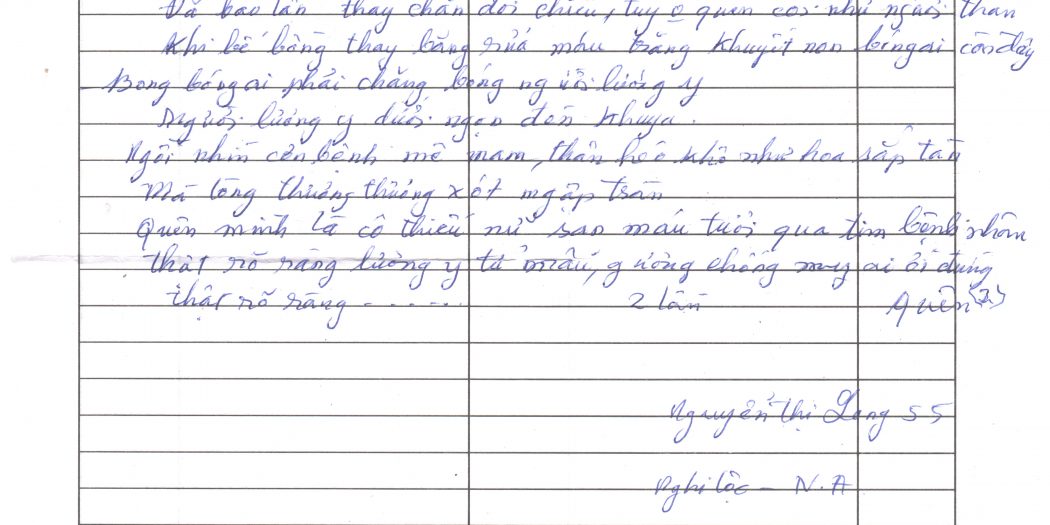 Đã bao lần thay chăn đổi chiếu, tuy o quen coi như người thân
Khi bế bồng thay băng rửa máu trăng khuyết non bóng ai còn đây
Bong bóng ai phải chăng bóng người lương y
Người lương y dưới ngọn đèn khuya.
Ngồi nhìn cơn bệnh mê mam, thân héo khô như hoa sắp tàn
Mà lòng thương thương xót ngập tràn
Quên mình là cô thiếu nữ sao máu tươi qua tim bệnh nhân
thật rõ ràng lương y từ mẫu, gương chồng ai ơi đừng
thật rõ ràng ....... 2 lần quên (2)
Nguyễn thị Long 55
Nghi lộc - N.A